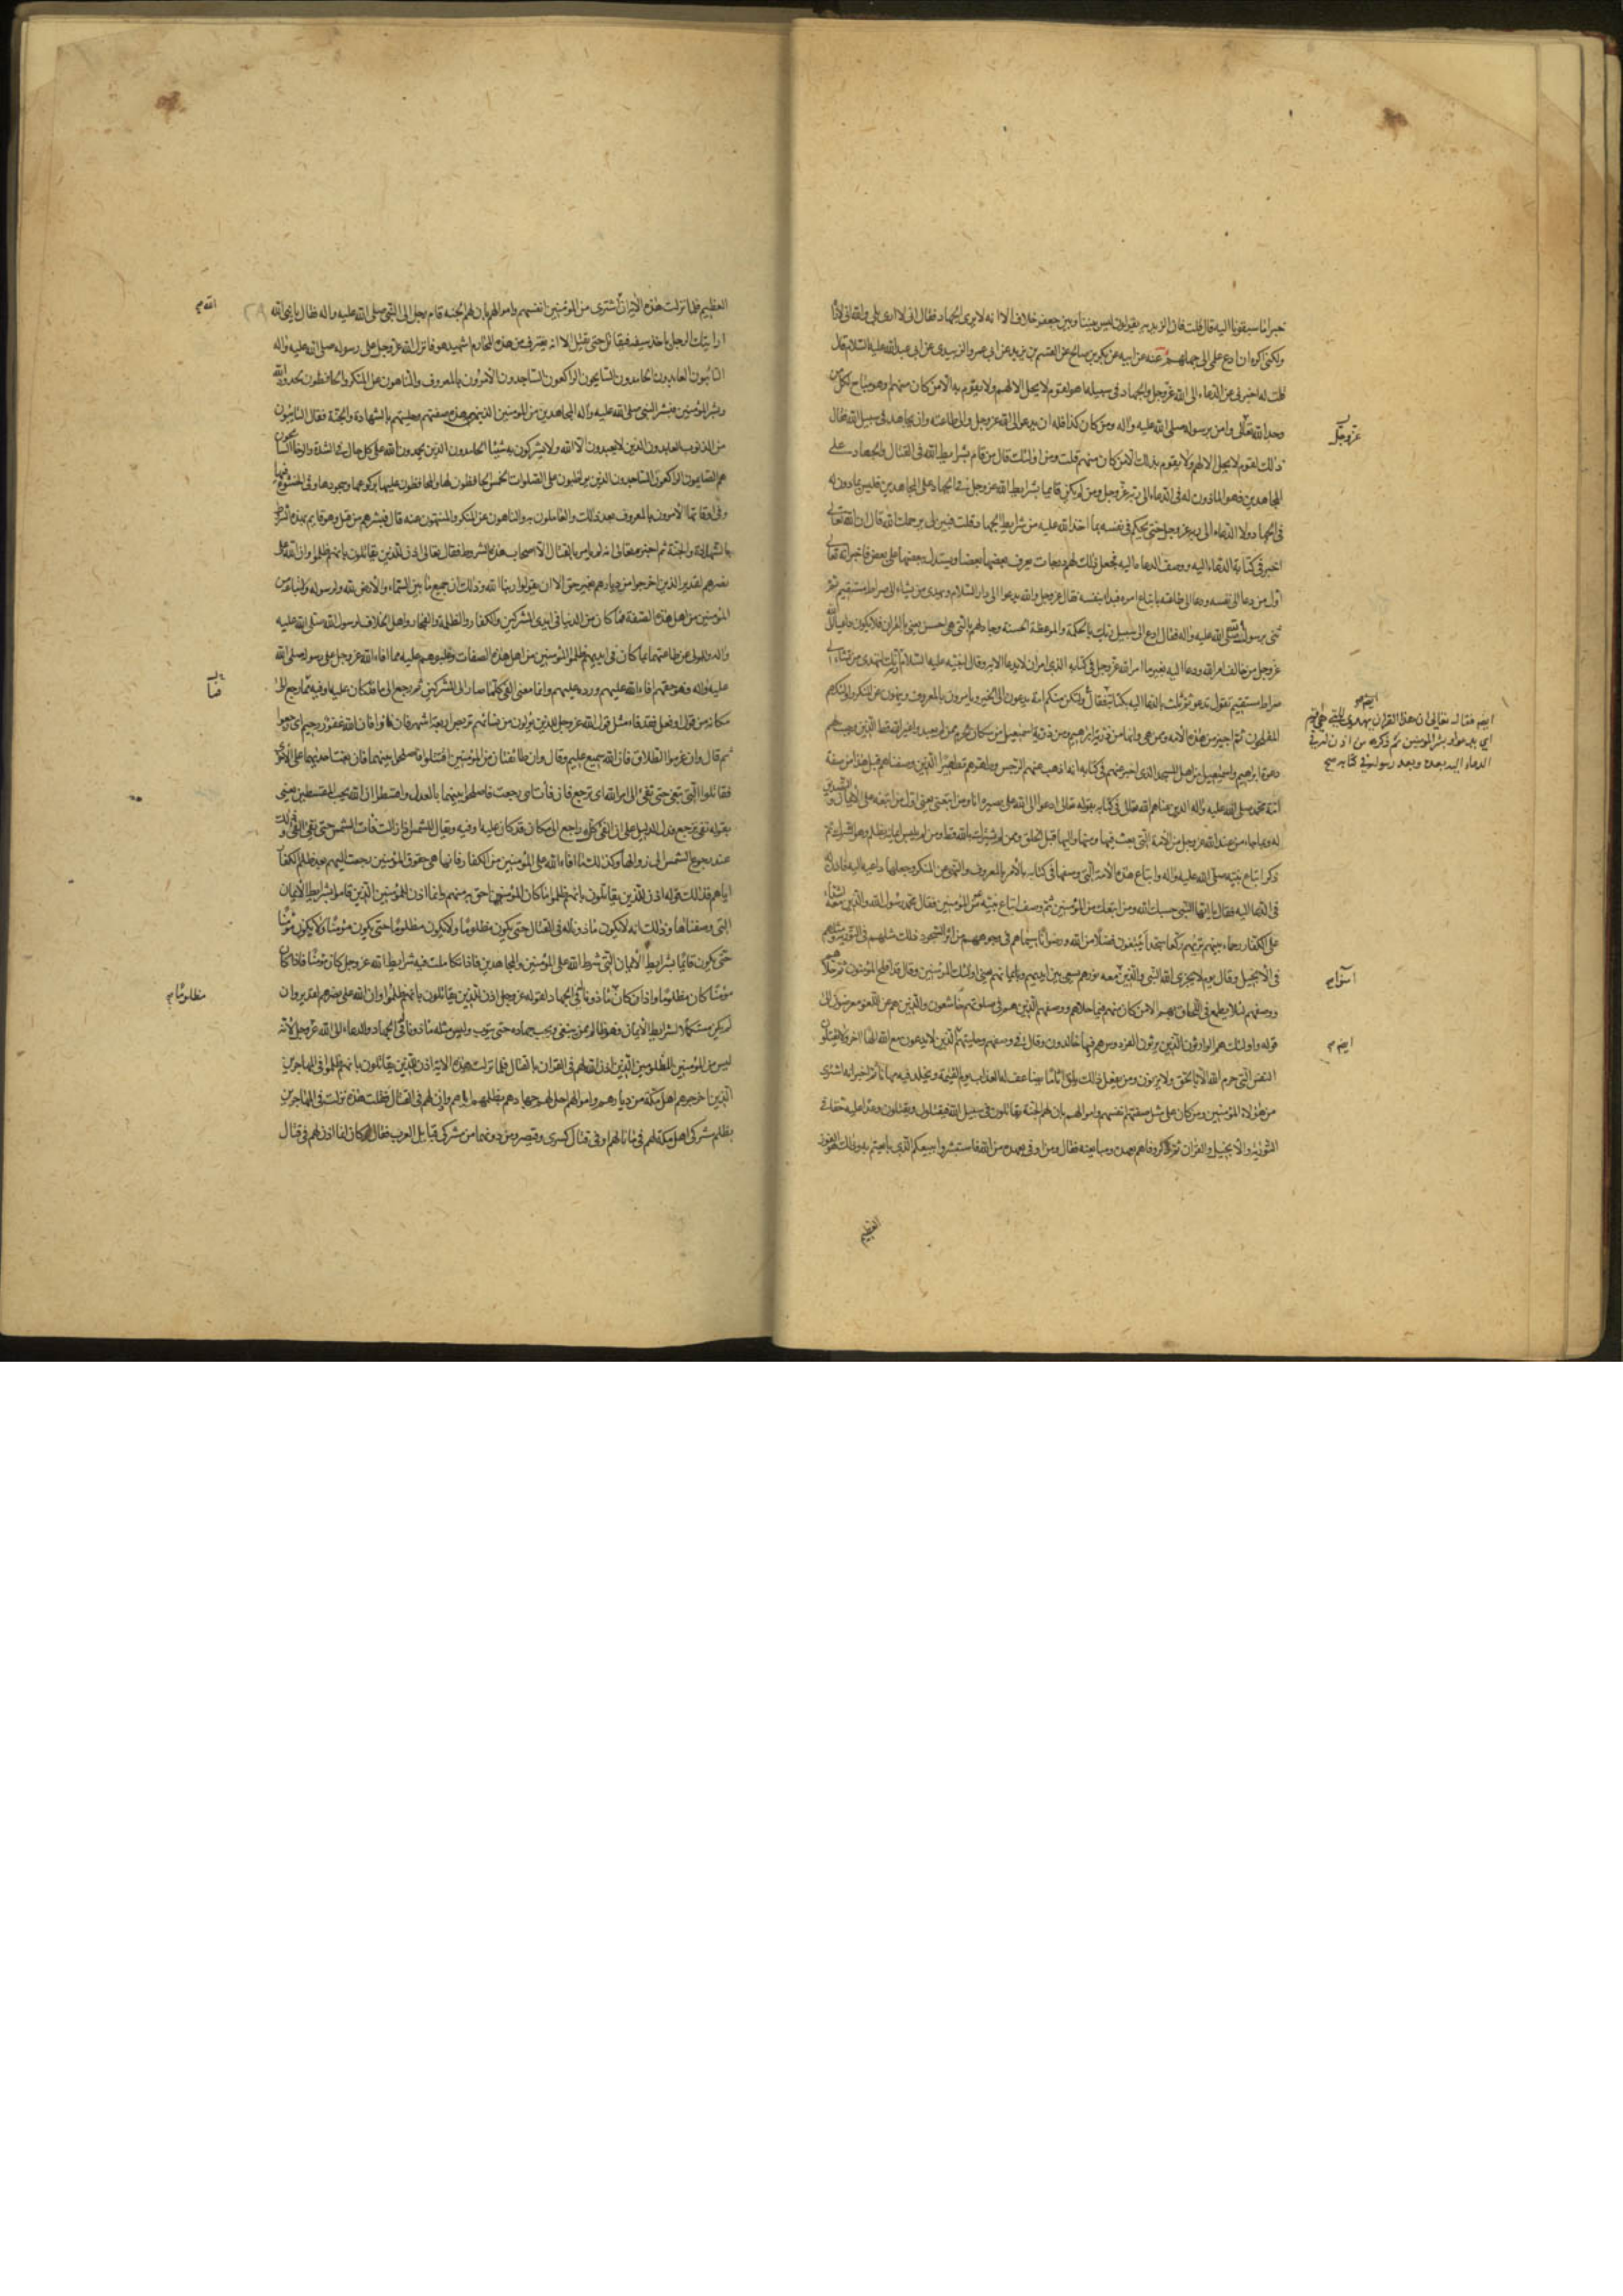 خيرا ما سبقونا اليه قال قلت فان الزيدية يقولون ليس بيننا وبين جعفر خلاف الا انه لا يرى الجهاد فقال انى لا ارى بلى والله انى لاراه
ولكنى اكره ان ادع علمى الى جهلهم عنه عن ابيه عن بكر بن صالح عن القسم بن بريد عن ابى عمرو الزبيدى عن ابى عبد الله عليه السلام قال
قلت له اخبرنى عن الدعاء الى الله عز وجل والجهاد فى سبيله اهو لقوم لا يحل الا لهم ولا يقوم به الا من كان منهم او هو مباح لكل من
وحد الله تعالى وامن برسوله صلى الله عليه واله ومن كان كذا فله ان يدعو الى الله عز وجل والى طاعته وان يجاهد فى سبيل الله فقال
ذلك لقوم لا يحل الا لهم ولا يقوم بذلك الا من كان منهم قلت ومن اولئك قال من قام بشرايط الله فى القتال والجهاد على
المجاهدين فهو الماذون له فى الدعاء الى الله عز وجل ومن لم يكن قايما بشرايط الله عز وجل فى الجهاد على المجاهدين فليس بماذون له
فى الجهاد ولا الدعاء الى الله عز وجل حتى يحكم فى نفسه بما اخذ الله عليه من شرايط الجهاد قلت فبين لى يرحمك الله قال ان الله تعالى
اخبر فى كتابه الدعاء اليه ووصف الدعاة اليه فجعل ذلك لهم درجات يعرف بعضها بعضا ويستدل ببعضها على بعض فاخبر انه تعالى
اول من دعا الى نفسه ودعا الى طاعته باتباع امره فبدا بنفسه فقال عز وجل والله يدعوا الى دار السلام ويهدى من يشاء الى صراط مستقيم ثم
ثنى برسوله صلى الله عليه واله فقال ادع الى سبيل ربك بالحكمة والموعظة الحسنة وجادلهم بالتى هى احسن يعنى بالقران فلا يكون داعيا الى الله
عز وجل من خالف امر الله ودعا اليه بغير ما امر الله عز وجل فى كتابه الذى امر ان لا يدعا الا به وقال لنبيه عليه السلام وانك لتهدى
صراط مستقيم يقول تدعو ثم ثلث بالدعا اليه بكتابه فقال ولتكن منكم امة يدعون الى الخير ويامرون بالمعروف وينهون عن المنكر واولئك هم
المفلحون ثم اخبر عن هذه الامة وممن هى وانها من ذرية ابرهيم ومن ذرية اسمعيل من سكان الحرم ممن لم يعبدوا غير الله قط الذين وجبت لهم
دعوة ابرهيم واسمعيل من اهل المسجد الذى اخبر عنهم فى كتابه انه اذهب عنهم الرجس وطهرهم تطهيرا الذين وصفناهم قبل هذا من صفة
امة محمد صلى الله عليه واله الذين عناهم الله تعالى فى كتابه بقوله تعالى ادعوا الى الله على بصيرة انا ومن اتبعنى يعنى اول من اتبعه على الايمان والتصديق
له وبما جاء من عند الله عز وجل من الامة التى بعث فيها ومنها واليها قبل الخلق ممن لم يشرك بالله قط ولم يلبس ايمانه بظلم وهو الشرك ثم
ذكر اتباع نبيه صلى الله عليه واله واتباع هذه الامة التى وصفها فى كتابه بالامر بالمعروف والنهى عن المنكر وجعلها داعية اليه فاذن له
فى الدعا اليه فقال يا ايها النبى حسبك الله ومن اتبعك من المؤمنين ثم وصف اتباع نبيه من المؤمنين فقال محمد رسول الله والذين معه اشداء
على الكفار رحماء بينهم تريهم ركعا سجدا يبتغون فضلا من الله ورضوانا سيماهم فى وجوههم من اثر السجود ذلك مثلهم فى التورية ومثلهم
فى الانجيل وقال يوم لا يخزى الله النبى والذين معه نورهم يسعى بين ايديهم وبايمانهم يعنى اولئك المؤمنين وقال قد افلح المؤمنون ثم حلاهم
ووصفهم لئلا يطمع فى اللحاق بهم الا من كان منهم فيما حلاهم ووصفهم الذين هم فى صلوتهم خاشعون والذين هم عن اللغو معرضون الى
قوله واولئك هم الوارثون الذين يرثون الفردوس هم فيها خالدون وقال فى وصفهم وحليتهم الذين لا يدعون مع الله الها اخر ولا يقتلون
النفس التى حرم الله الا بالحق ولا يزنون ومن يفعل ذلك يلق اثاما يضاعف له العذاب يوم القيمة ويخلد فيه مهانا ثم اخبر انه اشترى
من هؤلاء المؤمنين ومن كان على مثل صفتهم انفسهم واموالهم بان لهم الجنة يقاتلون فى سبيل الله فيقتلون ويقتلون وعدا عليه حقا فى
التورية والانجيل والقران ثم ذكر وفاهم بعهده ومبايعته فقال ومن اوفى بعهده من الله فاستبشروا ببيعكم الذى بايعتم به وذلك هو الفوز
العظيم
عز وجل
ايضم فقال تعالى ان هذا القران يهدى للتى هى اقوم
اى يدعوا ويبشر المؤمنين ثم ذكر من اذن له فى
الدعاء اليه بعده وبعد رسوله فى كتابه صح
امنوا م
ايضم م
العظيم فلما نزلت هذه الاية ان الله اشترى من المؤمنين انفسهم واموالهم بان لهم الجنة قام رجل الى النبى صلى الله عليه واله فقال يا نبى الله
ارايتك الرجل ياخذ سيفه فيقاتل حتى يقتل الا انه يقترف من هذه المحارم اشهيد هو فانزل الله عز وجل على رسوله صلى الله عليه واله
التائبون العابدون الحامدون السايحون الراكعون الساجدون الامرون بالمعروف والناهون عن المنكر والحافظون لحدود الله
وبشر المؤمنين فبشر النبى صلى الله عليه واله المجاهدين من المؤمنين الذين هذه صفتهم وحليتهم بالشهادة والجنة فقال التائبون
من الذنوب العابدون الذين لا يعبدون الا الله ولا يشركون به شيئا الحامدون الذين يحمدون الله على كل حال فى الشدة والرخا السايحون
هم الصايمون الراكعون الساجدون الذين يواظبون على الصلوات الخمس الحافظون لها والمحافظون عليها بركوعها وسجودها وفى الخشوع فيها
وفى اوقاتها الامرون بالمعروف بعد ذلك والعاملون به والناهون عن المنكر والمنتهون عنه قال فبشر من قتل وهو قايم بهذه الشروط
بالشهادة والجنة ثم اخبر تعالى انه لم يامر بالقتال الا اصحاب هذه الشروط فقال تعالى اذن للذين يقاتلون بانهم ظلموا وان الله على
نصرهم لقدير الذين اخرجوا من ديارهم بغير حق الا ان يقولوا ربنا الله وذلك ان جميع ما بين السماء والارض لله ولرسوله ولاتباعه من
المؤمنين من اهل هذه الصفة فما كان من الدنيا فى ايدى المشركين والكفار والظلمة والفجار واهل الخلاف لرسول الله صلى الله عليه
واله والمولى عن طاعتهما مما كان فى ايديهم ظلموا المؤمنين من اهل هذه الصفات وغلبوهم عليه مما افاء الله عز وجل على رسوله صلى الله
عليه واله فهو حقهم افاء الله عليهم ورده عليهم وانما معنى الفئ كلما صار الى المشركين ثم رجع الى ما قد كان عليه او فيه فما رجع الى
مكانه من قول او فعل فقد فاء مثل قول الله عز وجل للذين يؤلون من نسائهم تربص اربعة اشهر فان فاؤا فان الله غفور رحيم اى رجعوا
ثم قال وان عزموا الطلاق فان الله سميع عليم وقال وان طائفتان من المؤمنين اقتتلوا فاصلحوا بينهما فان بغت احديهما على الاخرى
فقاتلوا التى تبغى حتى تفئ الى امر الله اى ترجع فان فاءت اى رجعت فاصلحوا بينهما بالعدل واقسطوا ان الله يحب المقسطين يعنى
بقوله تفئ ترجع فدل الدليل على ان الفئ كل راجع الى مكان قد كان عليه او فيه ويقال للشمس اذا زالت فاءت الشمس حين يفئ الفئ
عند رجوع الشمس الى زوالها وكذلك ما افاء الله على المؤمنين من الكفار فانما هى حقوق المؤمنين رجعت اليهم بعد ظلم الكفار
اياهم فذلك قوله اذن للذين يقاتلون بانهم ظلموا ما كان المؤمنين احق به منهم وانما اذن للمؤمنين الذين قاموا بشرايط الايمان
التى وصفناها وذلك انه لا يكون ماذونا له فى القتال حتى يكون مظلوما ولا يكون مظلوما حتى يكون مؤمنا ولا يكون مؤمنا
حتى يكون قائما بشرايط الايمان التى شرط الله على المؤمنين والمجاهدين فاذا تكاملت فيه شرايط الله عز وجل كان مؤمنا فاذا كان
مؤمنا كان مظلوما واذا كان ماذونا فى الجهاد لقوله عز وجل اذن للذين يقاتلون بانهم ظلموا وان الله على نصرهم لقدير وان
لم يكن مستكملا لشرايط الايمان فهو ظالم ممن ينبغى ويجب جهاده حتى يتوب وليس مثله ماذونا فى الجهاد والدعاء الى الله عز وجل لانه
ليس من المؤمنين المظلومين الذين اذن لهم فى القران بالقتال فلما نزلت هذه الاية اذن للذين يقاتلون بانهم ظلموا فى المهاجرين
الذين اخرجهم اهل مكة من ديارهم واموالهم احل لهم جهادهم بظلمهم اياهم واذن لهم فى القتال فقلت هذه نزلت فى المهاجرين
بظلم مشركى اهل مكة لهم فما بالهم فى قتال كسرى وقيصر ومن دونهما من مشركى قبايل العرب فقال لو كان انما اذن لهم فى قتال
الله م
مظلوما م